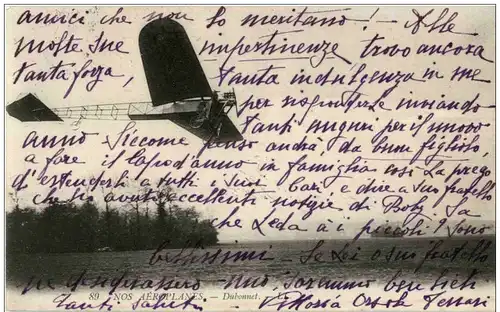 amici che non lo meritano! — Alle
molte Sue impertinenze trovo ancora
tanta forza, tanta indulgenza in me
per risponderle inviando
tanti auguri per il nuovo
anno Siccome penso andrà da buon figliolo,
a fare il Capo d'anno in famiglia così La prego
d'estenderli a tutti i Suoi Cari e dire a Suo fratello
che ho avuto eccellenti notizie di Boby. Sa
che Leda à i piccoli? Sono
bellissimi — Se Lei o Suo fratello
ne desiderassero — noi, saremmo ben lieti
89 NOS AÉROPLANES. — Dubonnet.
Tanti saluti Vittoria Ferrari